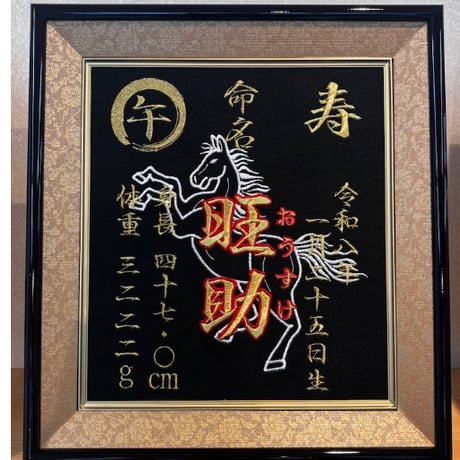 寿
令和八年
一月二十五日生
命名
旺助
おうすけ
午
身長 四十七・〇cm
体重 三二二二g